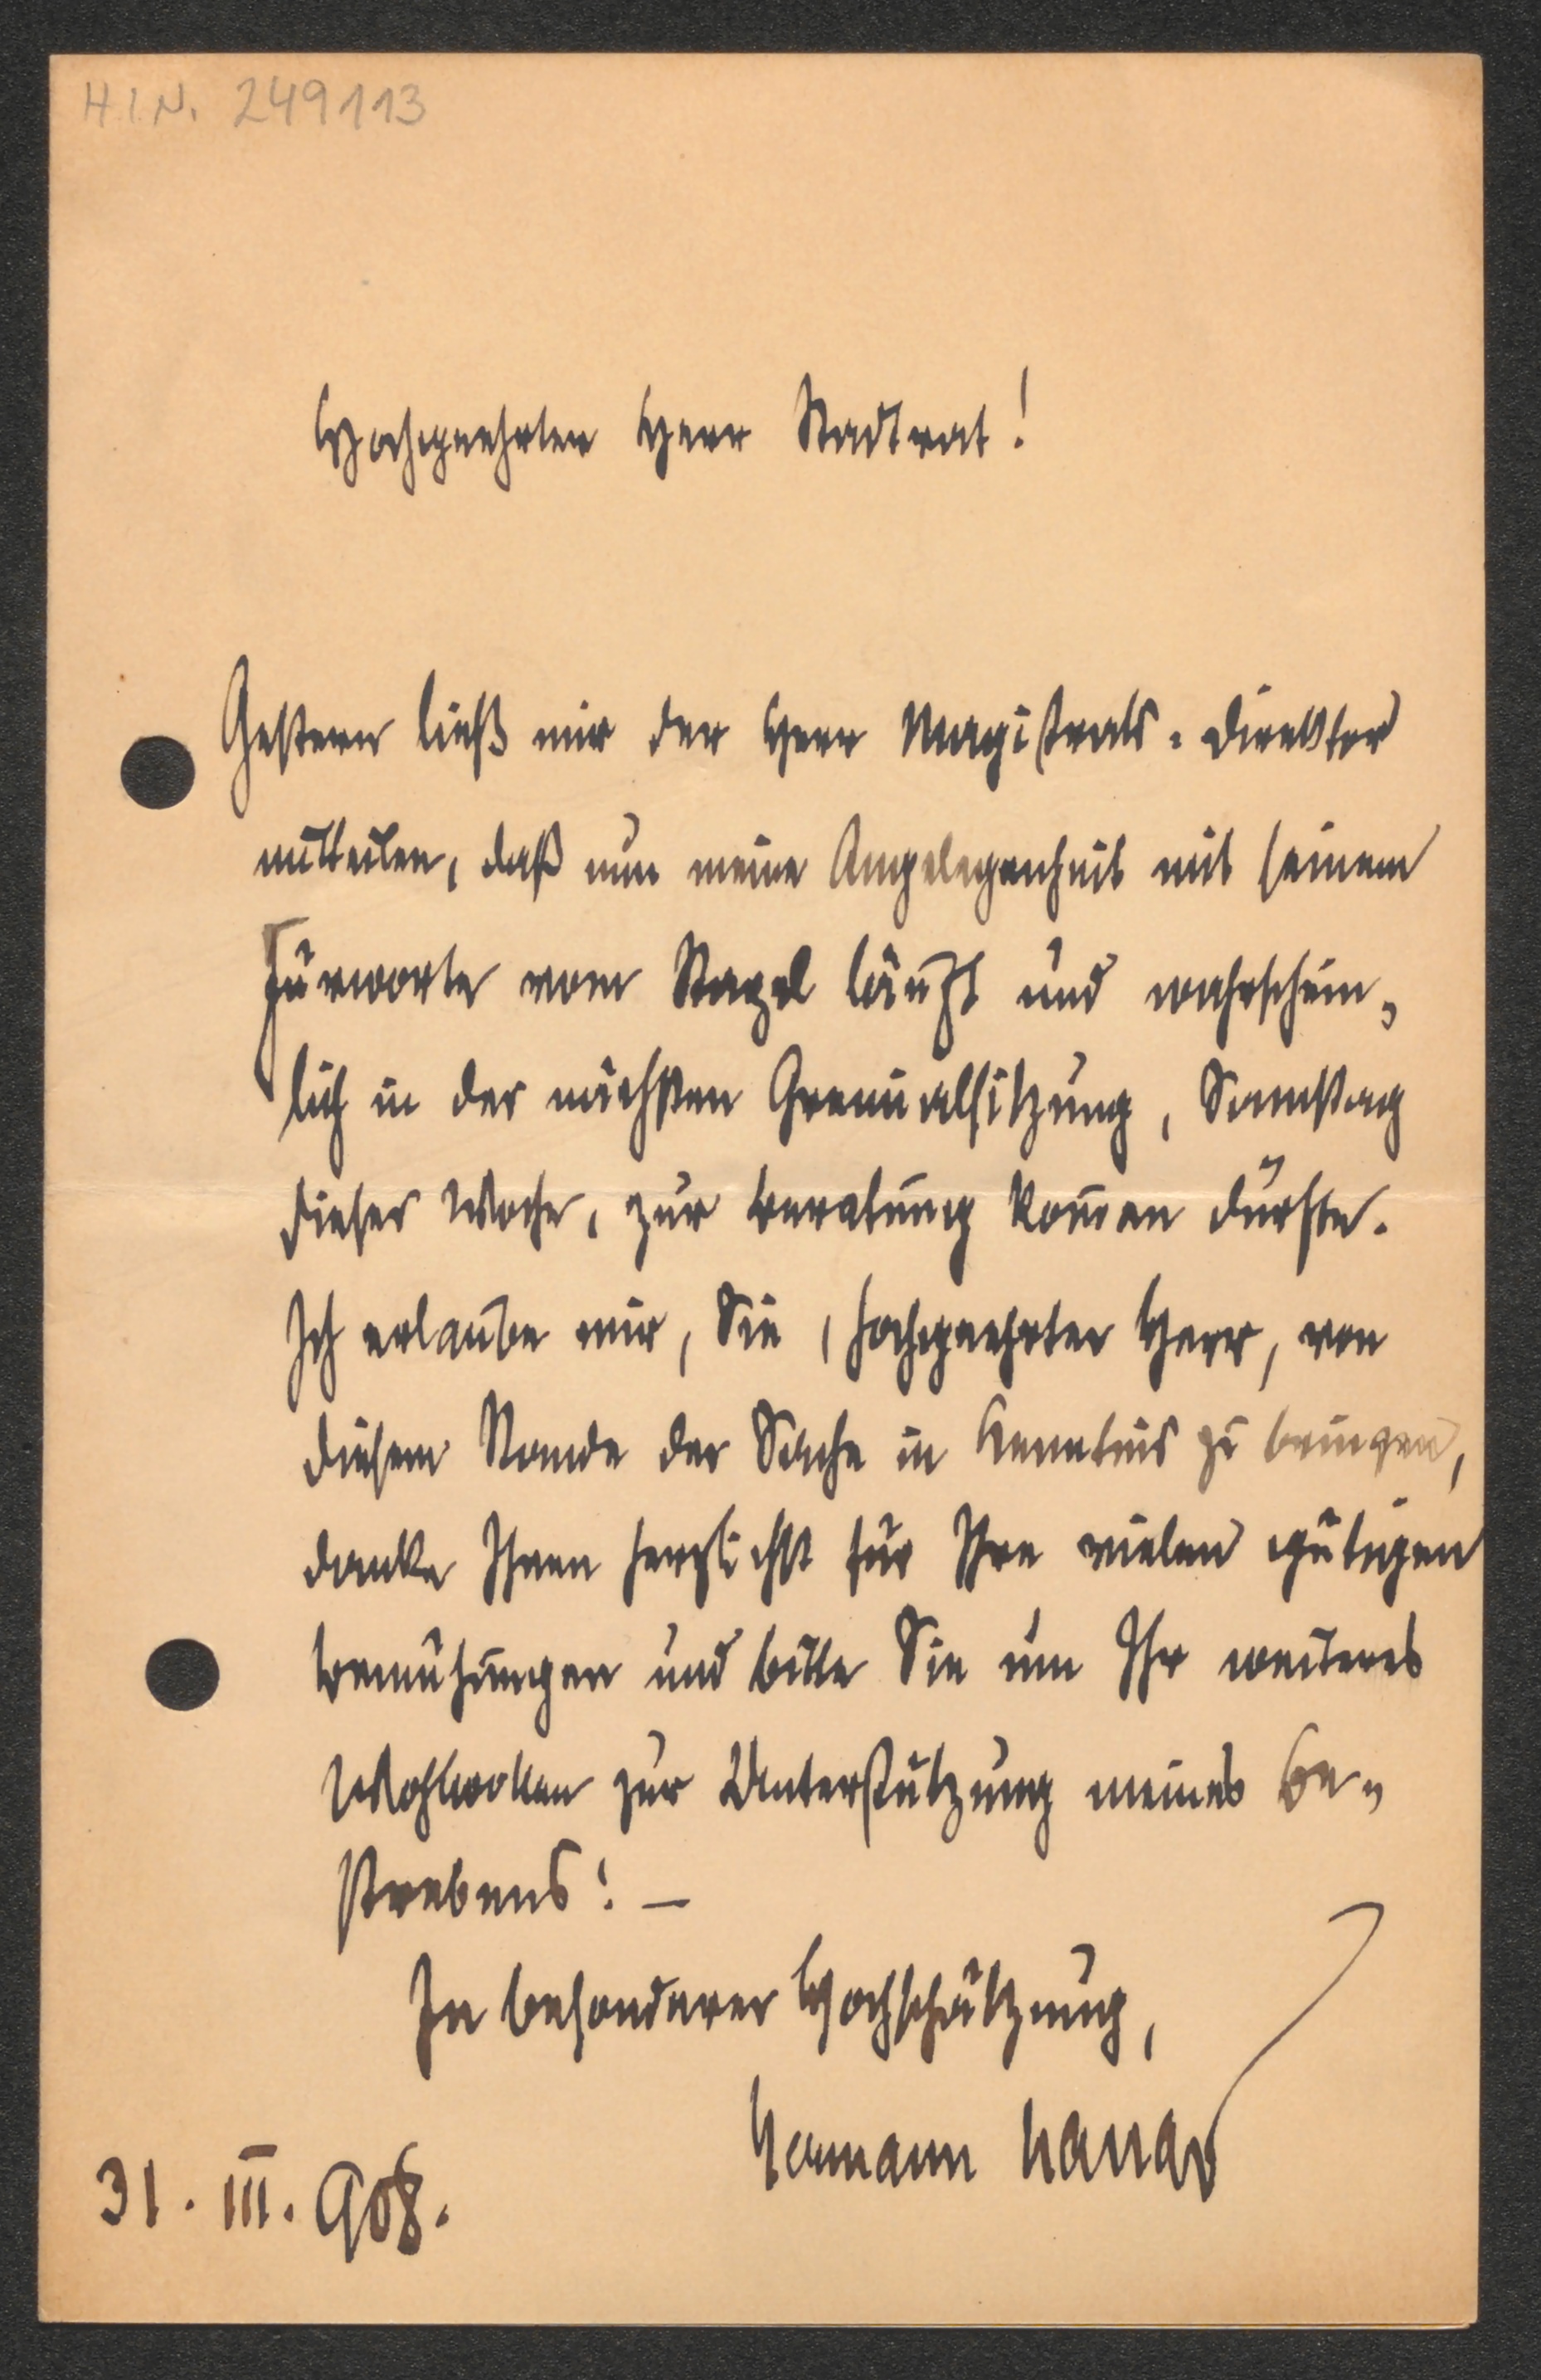 H.I.N. 249113
Hochgeehrter Herr Stadtrat!
Gestern ließ mir der Herr Magistrats-Direktor
mitteilen, daß nun meine Angelegenheit mit seinem
Fürworte vom Stapel läuft und wahrschein-
lich in der nächsten Gremialsitzung, Samstag
dieser Woche, zur Beratung kom̅en dürfte.
Ich erlaube mir, Sie, hochgeehrter Herr, von
diesem Stande der Sache in Kenntnis zu bringen,
danke Ihnen herzlichst für Ihre vielen gütigen
Bemühungen und bitte Sie um Ihr weiteres
Wohlwollen zur Unterstützung meines Be-
strebens! —
In besonderer Hochschätzung,
Hermann
31. III. 908.